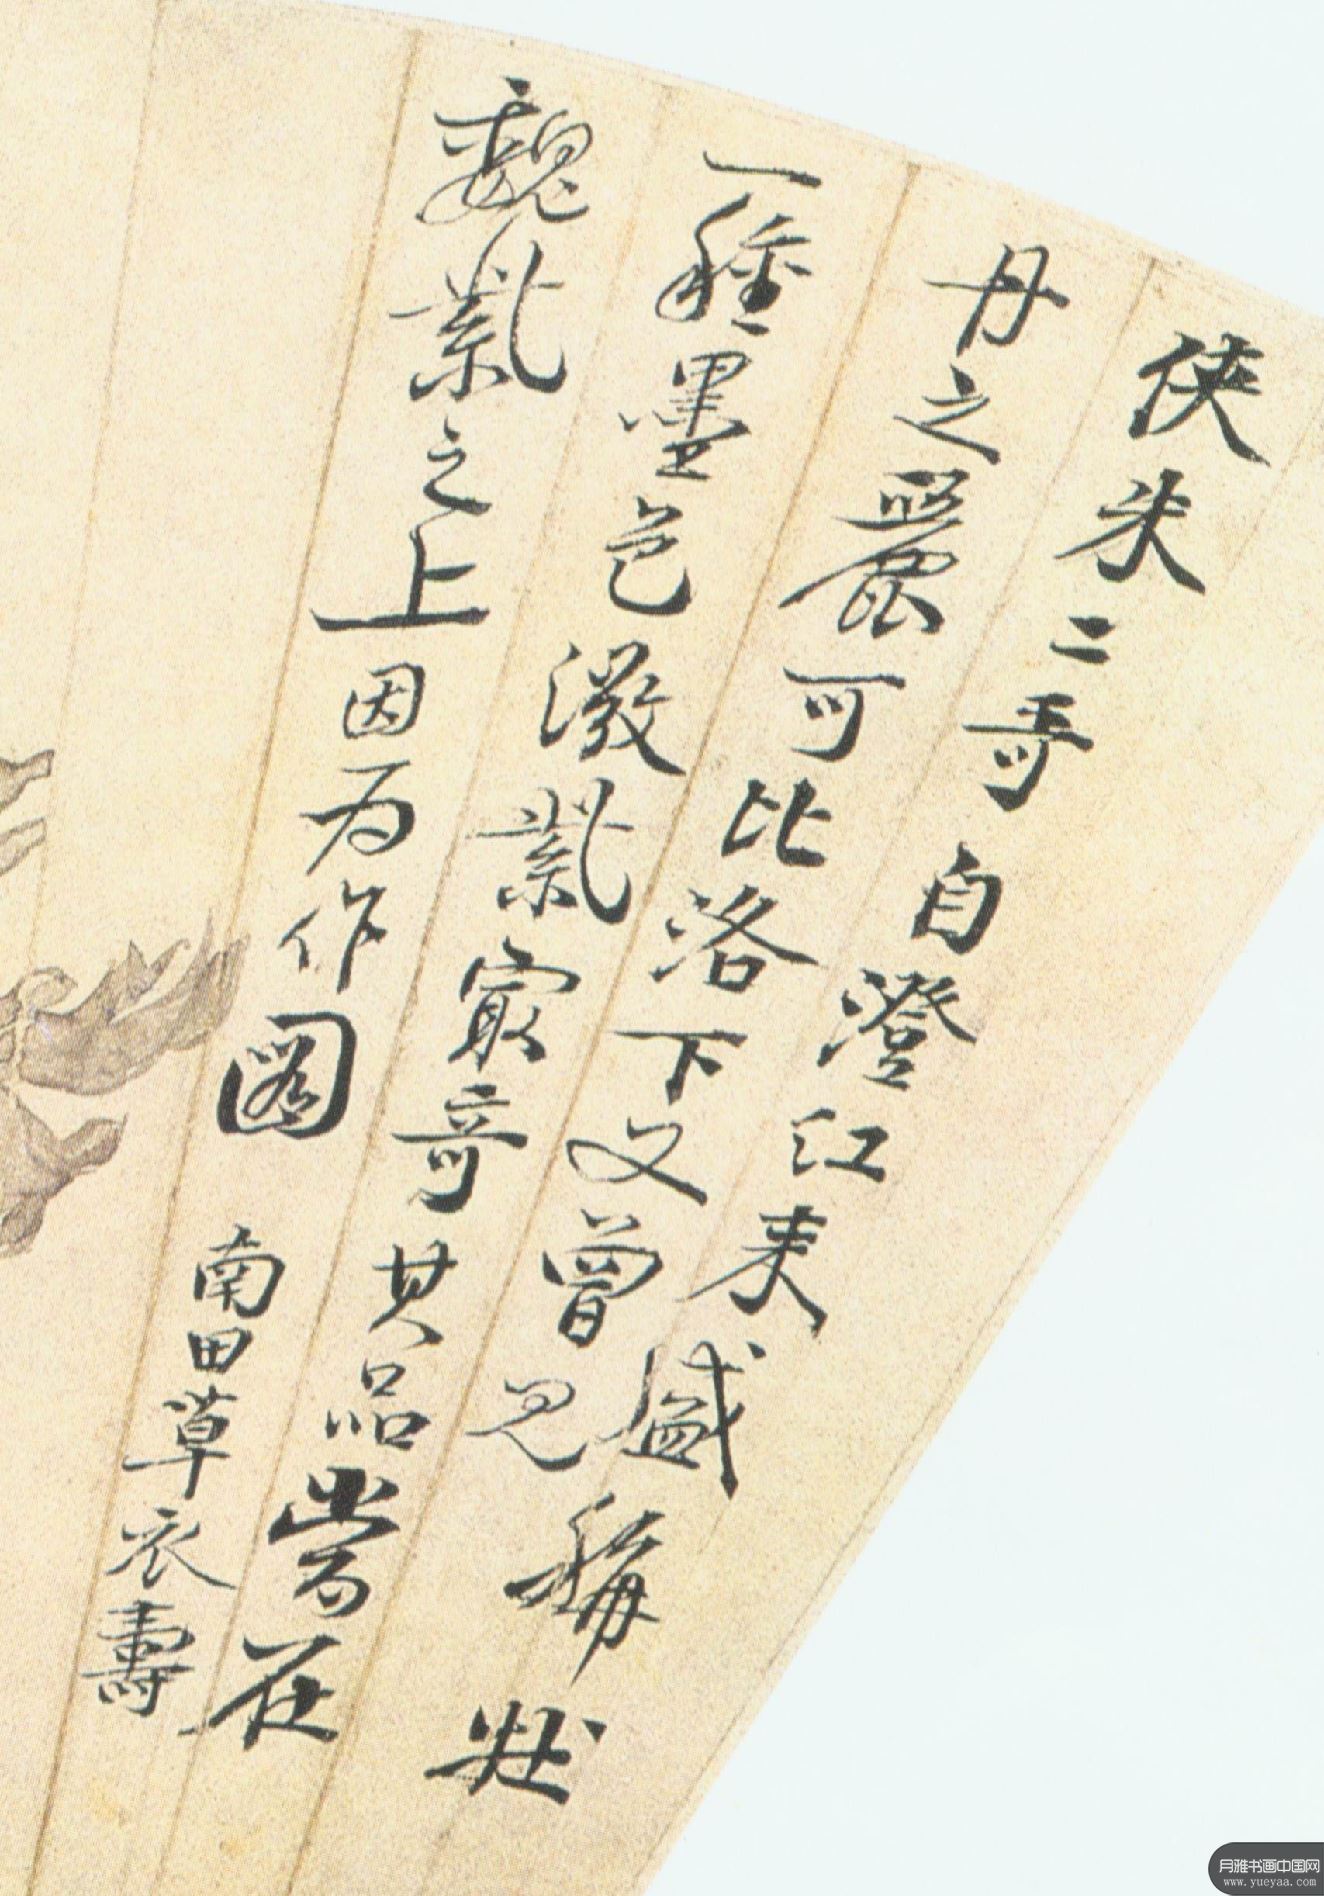 侠朱二哥自澄江来盛稱牡
丹之麗可比洛下又曾見
一種墨色潑紫最奇其品當在
魏紫之上因为作圖
南田草衣壽
月雅书画中国网
www.yueyaa.com